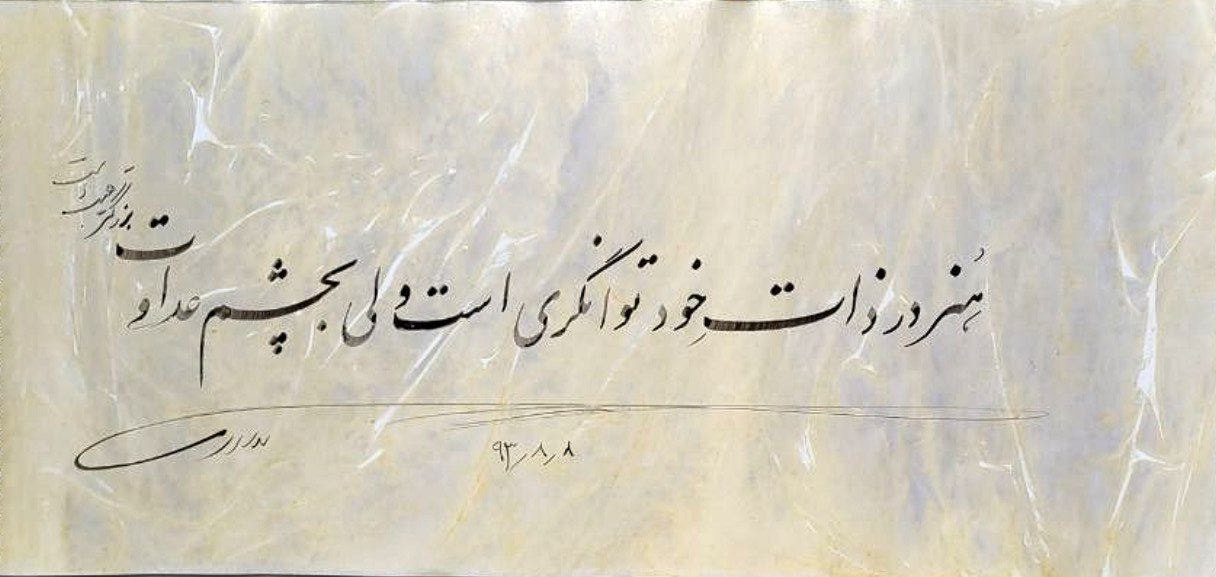 هُنر در ذات خود توانگری است ولی بچشم عداوت
بزرگتر عیب است
۹۳/۸/۸